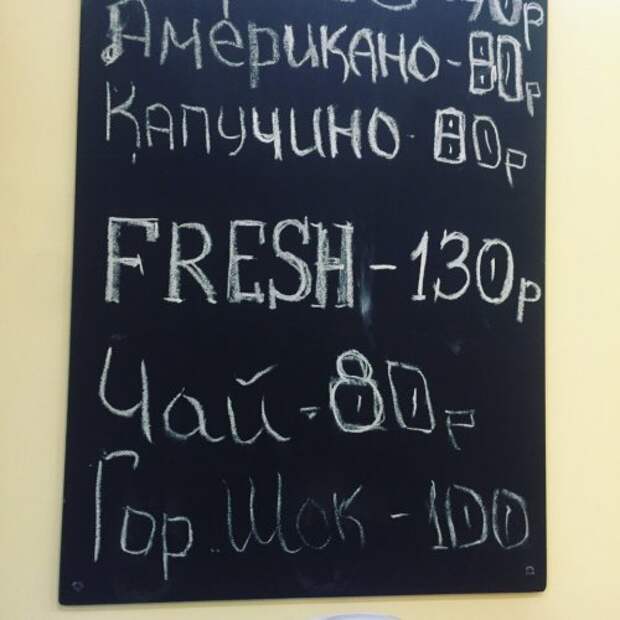 Американо-80р
Капучино-80р
FRESH-130р
Чай-80р
Гор.Шок-100